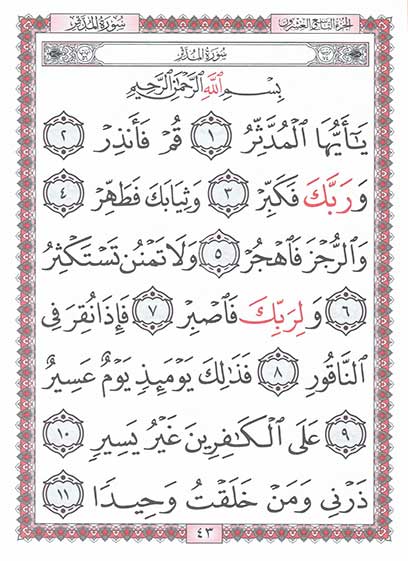 الجزء التاسع والعشرون سورة المدثر
سورة المدثر
بِسْمِ اللَّهِ الرَّحْمَٰنِ الرَّحِيمِ
يَٰٓأَيُّهَا الْمُدَّثِّرُ ١ قُمْ فَأَنذِرْ ٢
وَرَبَّكَ فَكَبِّرْ ٣ وَثِيَابَكَ فَطَهِّرْ ٤
وَالرُّجْزَ فَاهْجُرْ ٥ وَلَا تَمْنُن تَسْتَكْثِرُ
٦ وَلِرَبِّكَ فَاصْبِرْ ٧ فَإِذَا نُقِرَ فِي
النَّاقُورِ ٨ فَذَٰلِكَ يَوْمَئِذٍ يَوْمٌ عَسِيرٌ
٩ عَلَى الْكَٰفِرِينَ غَيْرُ يَسِيرٍ ١٠
ذَرْنِي وَمَنْ خَلَقْتُ وَحِيدًا ١١
٤٣